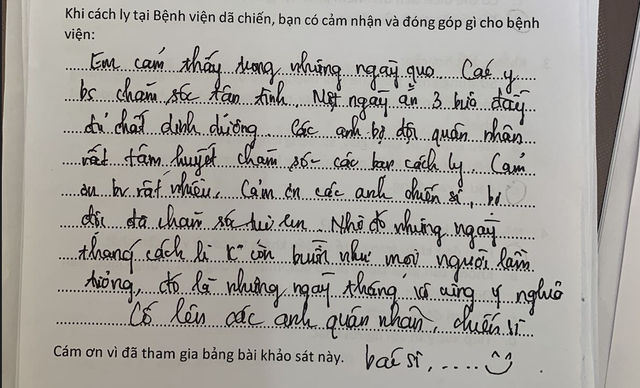 Khi cách ly tại Bệnh viện dã chiến, bạn có cảm nhận và đóng góp gì cho bệnh
viện:
Em cảm thấy trong những ngày qua Các y
bs chăm sóc tận tình. Một ngày ăn 3 bữa đầy
đủ chất dinh dưỡng. Các anh bộ đội quân nhân
rất tâm huyết chăm sóc các bạn cách ly. Cảm
ơn bv rất nhiều. Cảm ơn các anh chiến sĩ, bộ
đội đã chăm sóc tụi em. Nhờ đó những ngày
tháng cách li K° còn buồn như mọi người lầm
tưởng, đó là những ngày tháng vô cùng ý nghĩa
Cố lên các anh quân nhân, chiến sĩ
Cám ơn vì đã tham gia bảng bài khảo sát này. bác sĩ, .....